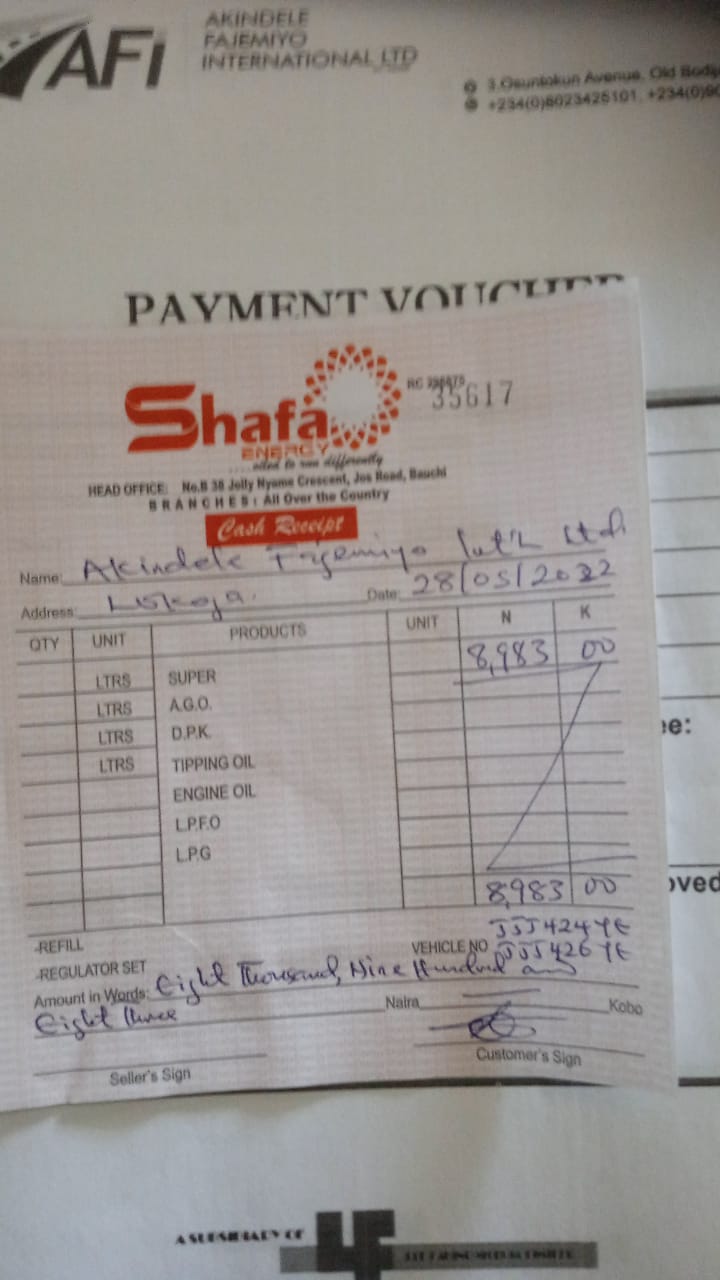 AFI
AKINDELE
FAJEMIYO
INTERNATIONAL LTD
3, Osuntokun Avenue, Old Bodij
+234(0)8023425101, +234(0)90
PAYMENT VOUCHER
Shafa
ENERGY
RC
35617
to run differently
HEAD OFFICE: No.B 38 Jelly Nyame Crescent, Jos Road, Bauchi
BRANCHES: All Over the Country
Cash Receipt
Name: Akindele Fajemiyo Int'l Ltd
Address: Lokoja. Date: 28/05/2022
QTY UNIT PRODUCTS UNIT N K
8,983 00
LTRS SUPER
LTRS A.G.O.
LTRS D.P.K.
LTRS TIPPING OIL
ENGINE OIL
L.P.F.O
L.P.G
8,983 00
-REFILL
JJJ 424 YE
-REGULATOR SET VEHICLE NO JJJ 426 YE
Amount in Words: Eight Thousand, Nine Hundred and
Eight three Naira Kobo
Seller's Sign Customer's Sign
ee:
oved
A SUBSIDIARY OF